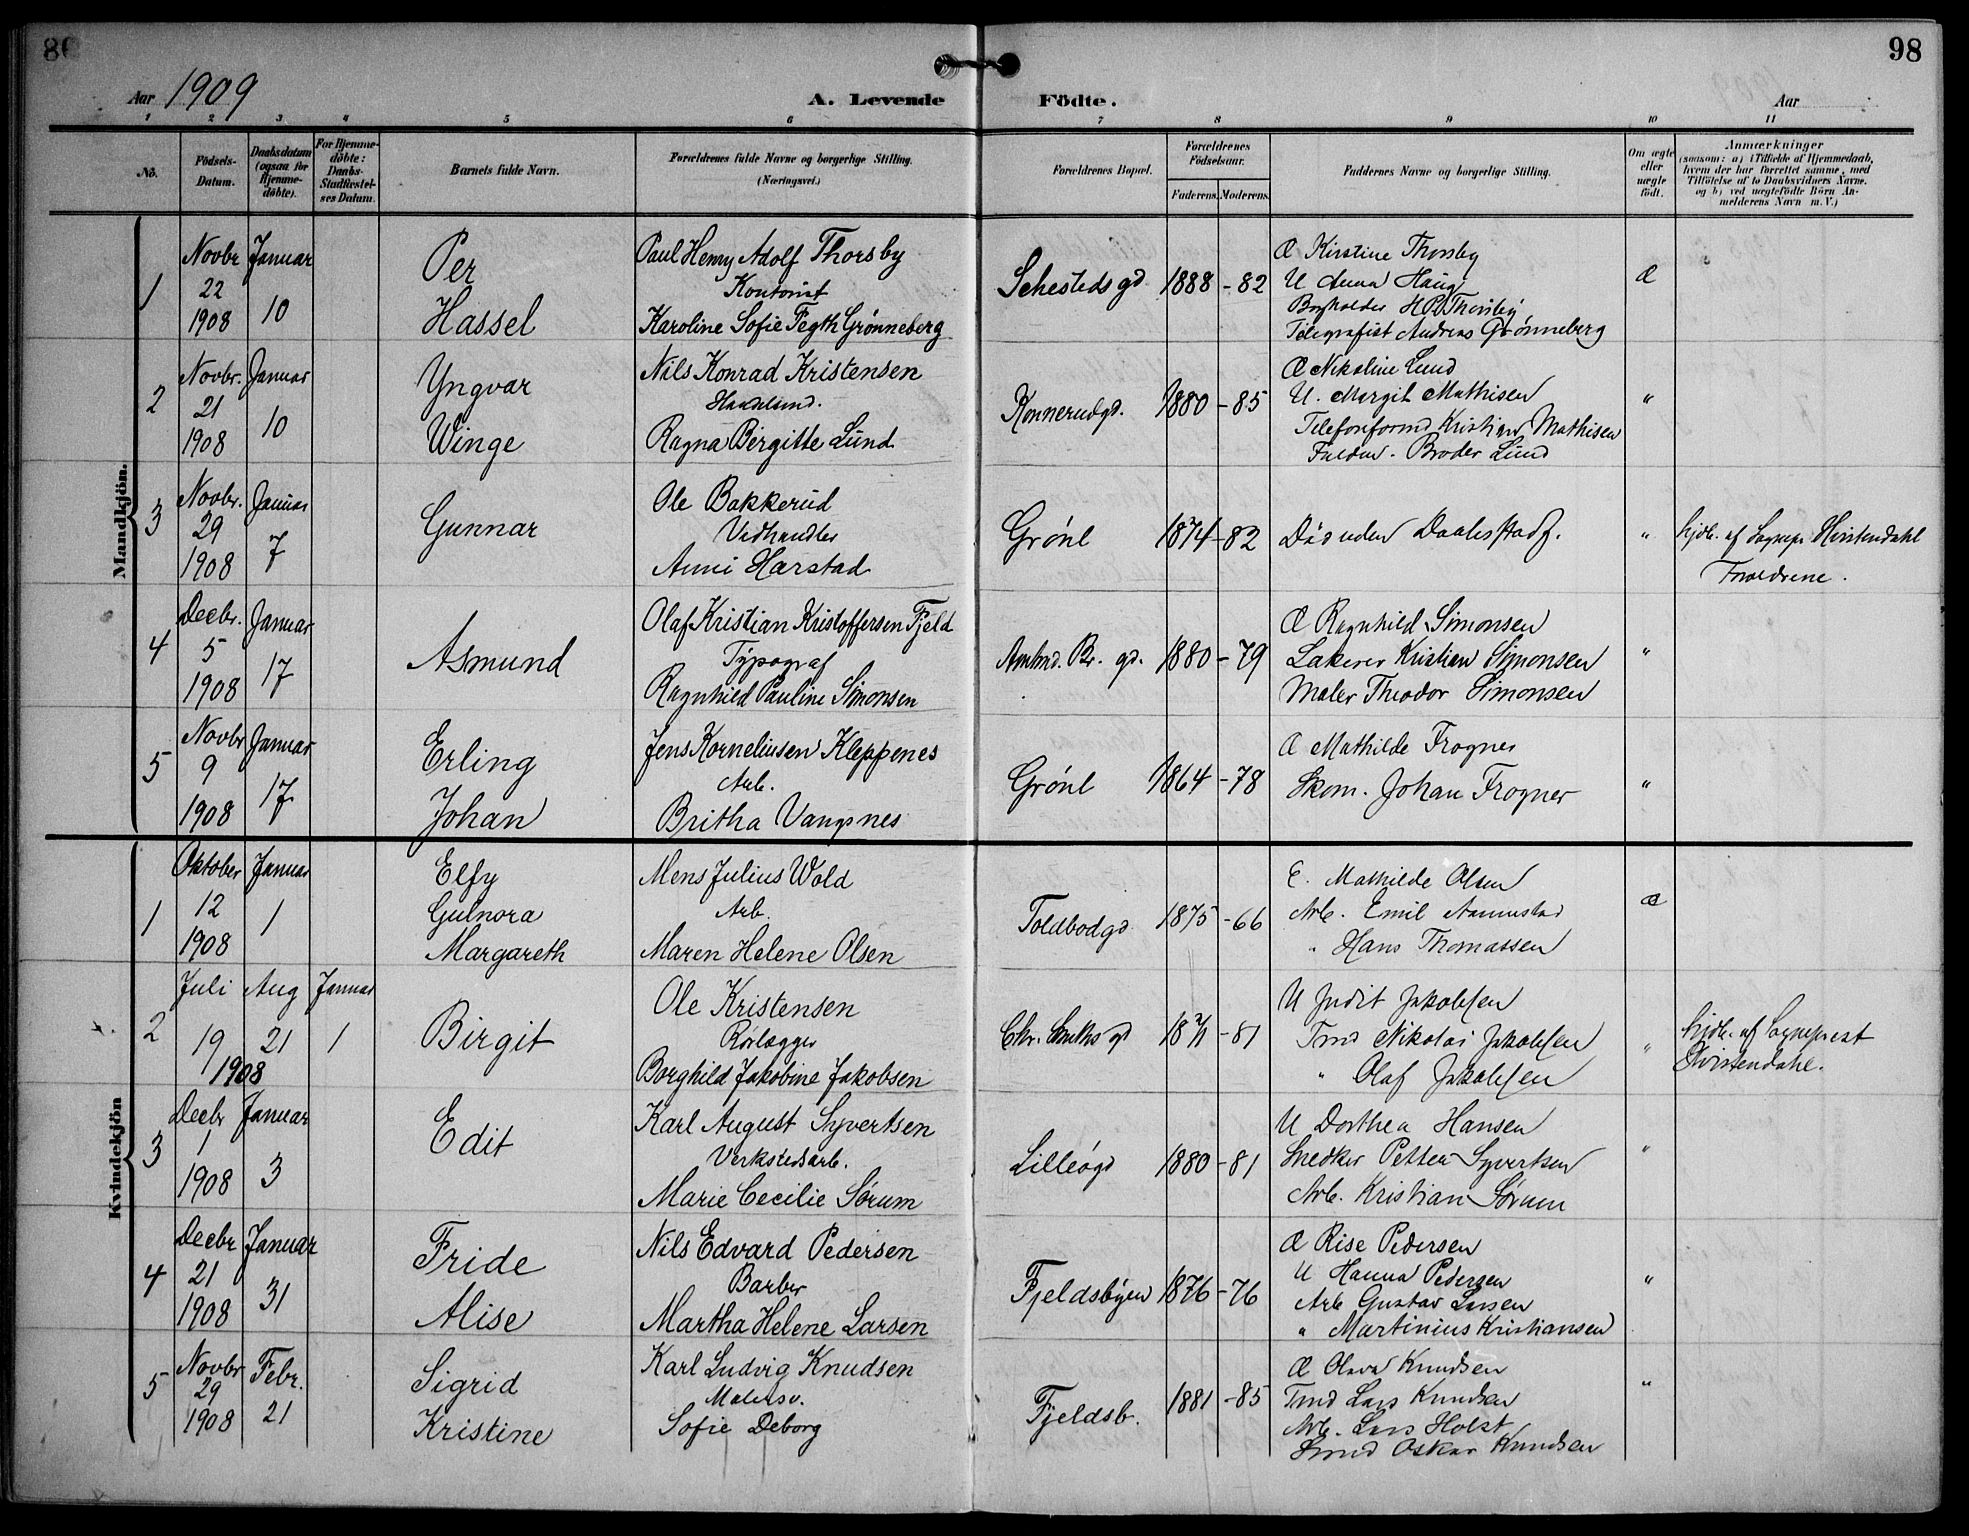 98
Aar 1909
A. Levende Födte.
Aar
1 2 3 4 5 6 7 8 9 10 11
No.
Födsels-Datum.
Daabsdatum (ogsaa for Hjemme-döbte).
For Hjemme-döbte: Daabs-Stadfæstel-ses Datum.
Barnets fulde Navn.
Forældrenes fulde Navne og borgerlige Stilling. (Næringsvei.)
Forældrenes Bopæl.
Forældrenes Födselsaar.
Faderens. Moderens.
Faddernes Navne og borgerlige Stilling.
Om ægte eller uægte födt.
Anmærkninger
(saasom: a) i Tilfælde af Hjemmedaab, hvem der har forrettet samme, med Tilföielse af to Daabsvidners Navne. og b) ved uægtefödte Börn An-melderens Navn m. V.)
Mandkjön.
1
Novbr 22 1908
Januar 10
Per
Hassel
Paul Henry Adolf Thorsby
Kontorist
Karoline Sofie Fegth Grønneberg
Sehesteds gd
1888 - 82
Æ Kirstine Thorsby
U Anna Haug
Thorsby
Telegrafist Andreas Grønneberg
Æ
2
Novbr. 21 1908
Januar 10
Yngvar
Winge
Nils Konrad Kristensen
Handelsmd.
Ragna Bergitte Lund
Konnerudgd.
1880 - 85
Æ Nikoline Lund
U. Margit Mathisen
Telefonformd Kristian Mathisen
Faderen. Broder Lund
"
3
Novbr. 29 1908
Januar 7
Gunnar
Ole Bakkerud
Vedhandler
Anni Harstad
Grönl
1874 - 82
Död uden Daabsstadf.
"
hjdb. af Sognepr Hvistendahl
Forældrene.
4
Decbr. 5 1908
Januar 17
Asmund
Olaf Kristian Kristoffersen Fjeld
Typograf
Ragnhild Pauline Simonsen
Amtmd. Bl. gd.
1880 - 79
Æ Ragnhild Simonsen
Lakerer Kristian Simonsen
Maler Theodor Simonsen
"
5
Novbr 9 1908
Januar 17
Erling
Johan
Jens Korneliusen Kleppenes
Arb.
Britha Vangsnes
Grönl
1864 - 78
Æ Mathilde Frogner
Skom. Johan Frogner
"
Kvindekjön
1
Oktober 12 1908
Januar 1
Elfy
Gulnora
Margareth
Mens Julius Wold
Arb.
Maren Helene Olsen
Toldbodgd.
1875 - 66
E. Mathilde Olsen
Arb. Emil
" Hans Thomassen
Æ
2
Juli 19 1908
Aug 21
Januar 1
Birgit
Ole Kristensen
Rörlægger
Borghild Jakobine Jakobsen
Chr. gd
1871 - 81
U Judit Jakobsen
Tmd Nikolai Jakobsen
" Olaf Jakobsen
"
hjdb. af Sogneprest
Hvistendahl.
3
Decbr 1 1908
Januar 3
Edit
Karl August Syvertsen
Verkstedsarb.
Marie Cecilie Sørum
Lilleögd
1880 - 81
U Dorthea Hansen
Snedker Petter Syvertsen
Arb. Kristian Sørum
"
4
Decbr 21 1908
Januar 31
Fride
Alise
Nils Edvard Pedersen
Barber
Martha Helene Larsen
Fjeldsbyen
1876 - 76
Æ Rise Pedersen
U Hanna Pedersen
Arb Gustav Larsen
" Martinius Kristiansen
"
5
Novbr 29 1908
Febr. 21
Sigrid
Kristine
Karl Ludvig Knudsen
Malersv.
Sofie Deborg
Fjeldsb.
1881 - 85
Æ Olava Knudsen
Tmd Lars Knudsen
Arb. Lars Holst
Smed Oskar Knudsen
"